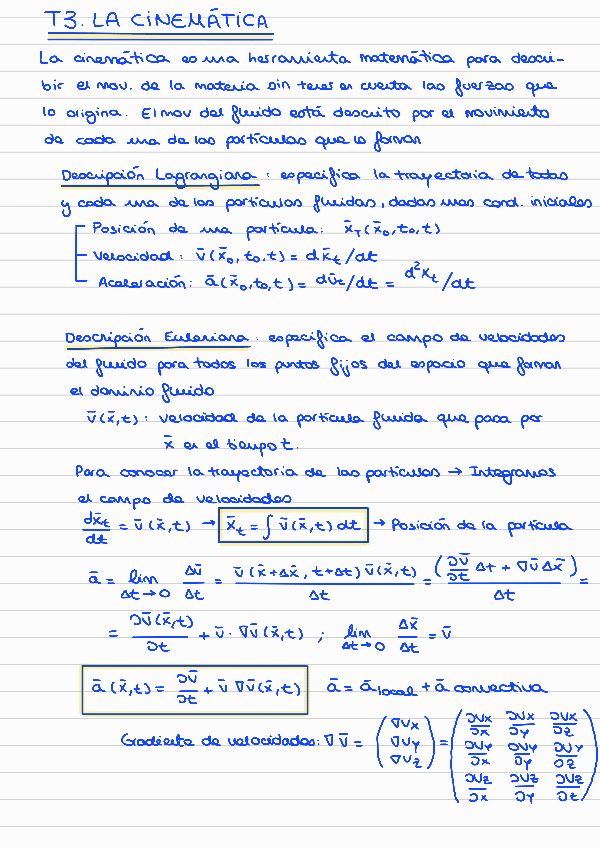 T3. LA CINEMÁTICA
La cinemática es una herramienta matemática para descri-
bir el mov. de la materia sin tener en cuenta las fuerzas que
lo origina. El mov del fluido está descrito por el movimiento
de cada una de las partículas que lo forman
Descripción Lagrangiana: especifica la trayectoria de todas
y cada una de las partículas fluidas, dadas unas cond. iniciales
Posición de una partícula: x̄_T(x̄_0, t_0, t)
Velocidad: v̄(x̄_0, t_0, t) = dx̄_t/dt
Aceleración: ā(x̄_0, t_0, t) = dv̄_t/dt = d²x_t/dt
Descripción Euleriana: especifica el campo de velocidades
del fluido para todos los puntos fijos del espacio que forman
el dominio fluido
v̄(x̄,t): velocidad de la partícula fluida que pasa por
x̄ en el tiempo t.
Para conocer la trayectoria de las partículas → Integramos
el campo de velocidades
dx̄_t/dt = v̄(x̄,t) → x̄_t = ∫ v̄(x̄,t) dt → Posición de la partícula
ā = lim Δt→0 Δv̄/Δt = v̄(x̄+Δx̄, t+Δt) v̄(x̄,t)/Δt = (∂v̄/∂t Δt + ∇v̄ Δx̄)/Δt =
= ∂v̄(x̄,t)/∂t + v̄ · ∇v̄(x̄,t) ; lim Δt→0 Δx̄/Δt = v̄
ā(x̄,t) = ∂v̄/∂t + v̄ ∇v̄(x̄,t) ā = ā local + ā convectiva
Gradiente de velocidades: ∇v̄ = (∇v_x ∇v_y ∇v_z) = (∂v_x/∂x ∂v_x/∂y ∂v_x/∂z
∂v_y/∂x ∂v_y/∂y ∂v_y/∂z
∂v_z/∂x ∂v_z/∂y ∂v_z/∂t)